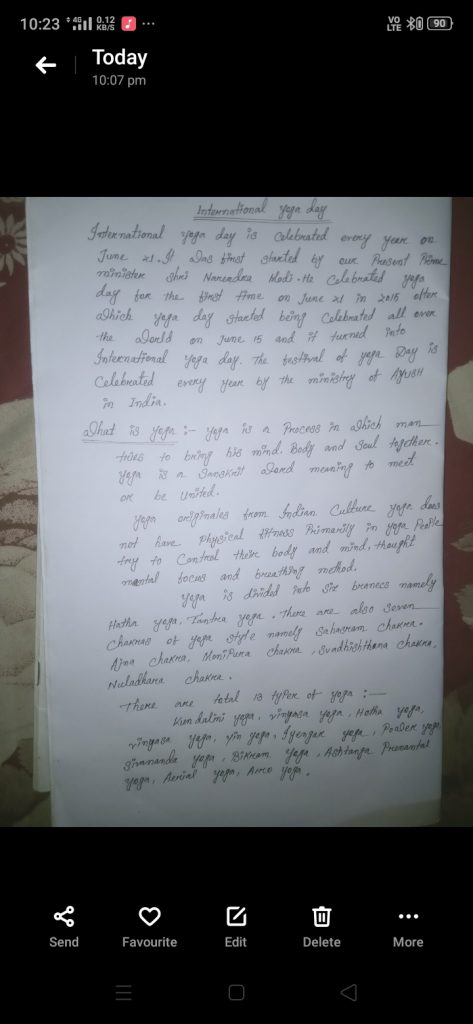 10:23 4G 0.12 KB/S ... VO LTE 90
Today
10:07 pm
International yoga day
International yoga day is Celebrated every year on
June 21. It was first started by our Present Prime
minister Shri Narendra Modi. He Celebrated yoga
day for the first time on June 21 in 2015 after
which yoga day started being Celebrated all over
the world on June 15 and it turned into
International Yoga day. The festival of yoga Day is
Celebrated every year by the ministry of AYUSH
in India.
What is yoga :- yoga is a Process in which man
tries to bring his mind, Body and Soul together.
yoga is a Sanskrit word meaning to meet
or be United.
yoga originales from Indian Culture yoga does
not have Physical fitness Primarily in yoga People
try to Control their body and mind, thought
mental focus and breathing method.
yoga is divided into six brances namely
Hatha yoga, Tantra yoga. There are also Seven
Chakras of yoga style namely Sahasram chakra.
Ajna chakra, Monipura chakra, Svadhishthana chakra,
Nuladhara chakra.
There are total 13 typer of yoga :—
Kundalini yoga, vinyasa yoga, Hatha yoga,
vinyasa yoga, yin yoga, Iyengar yoga, Power yoga,
Sivananda yoga, Bikram yoga, Ashtanga Prenantal
yoga, Aerial yoga, Acro yoga.
Send Favourite Edit Delete More